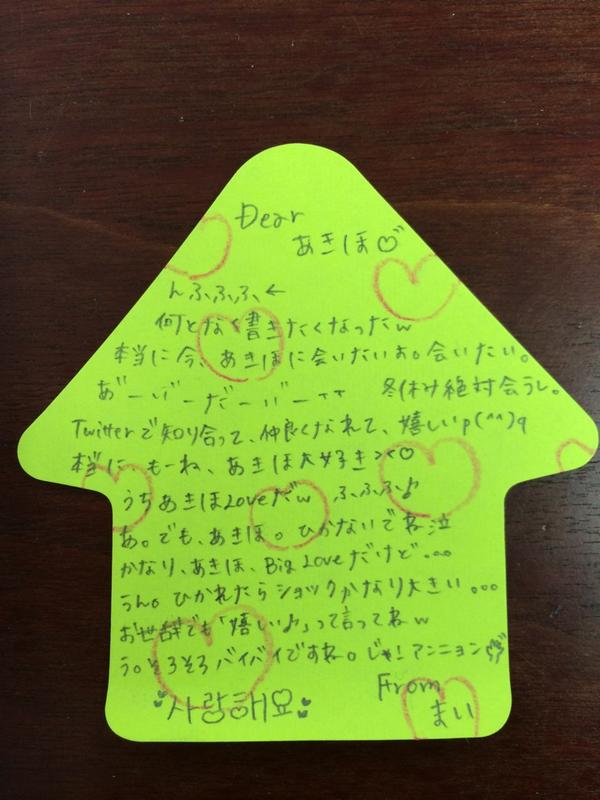 Dear
あきほ♡
んふふふ、←
何となく書きたくなったw
本当に今、あきほに会いたいお。会いたい。
冬休み絶対会うし。
Twitterで知り合って、仲良くなれて、嬉しいp(^^)q
本当に もーね、あきほ大好き><♡
うちあきほLoveだw ふふふ♪
あ。でも、あきほ。ひかないでね泣
かなり、あきほ、Big Loveだけど...
うん。ひかれたらショックかなり大きい...
お世辞でも「嬉しい♪」って言ってねw
う。そろそろバイバイですね。じゃ!アンニョン
사랑해요
From
まい